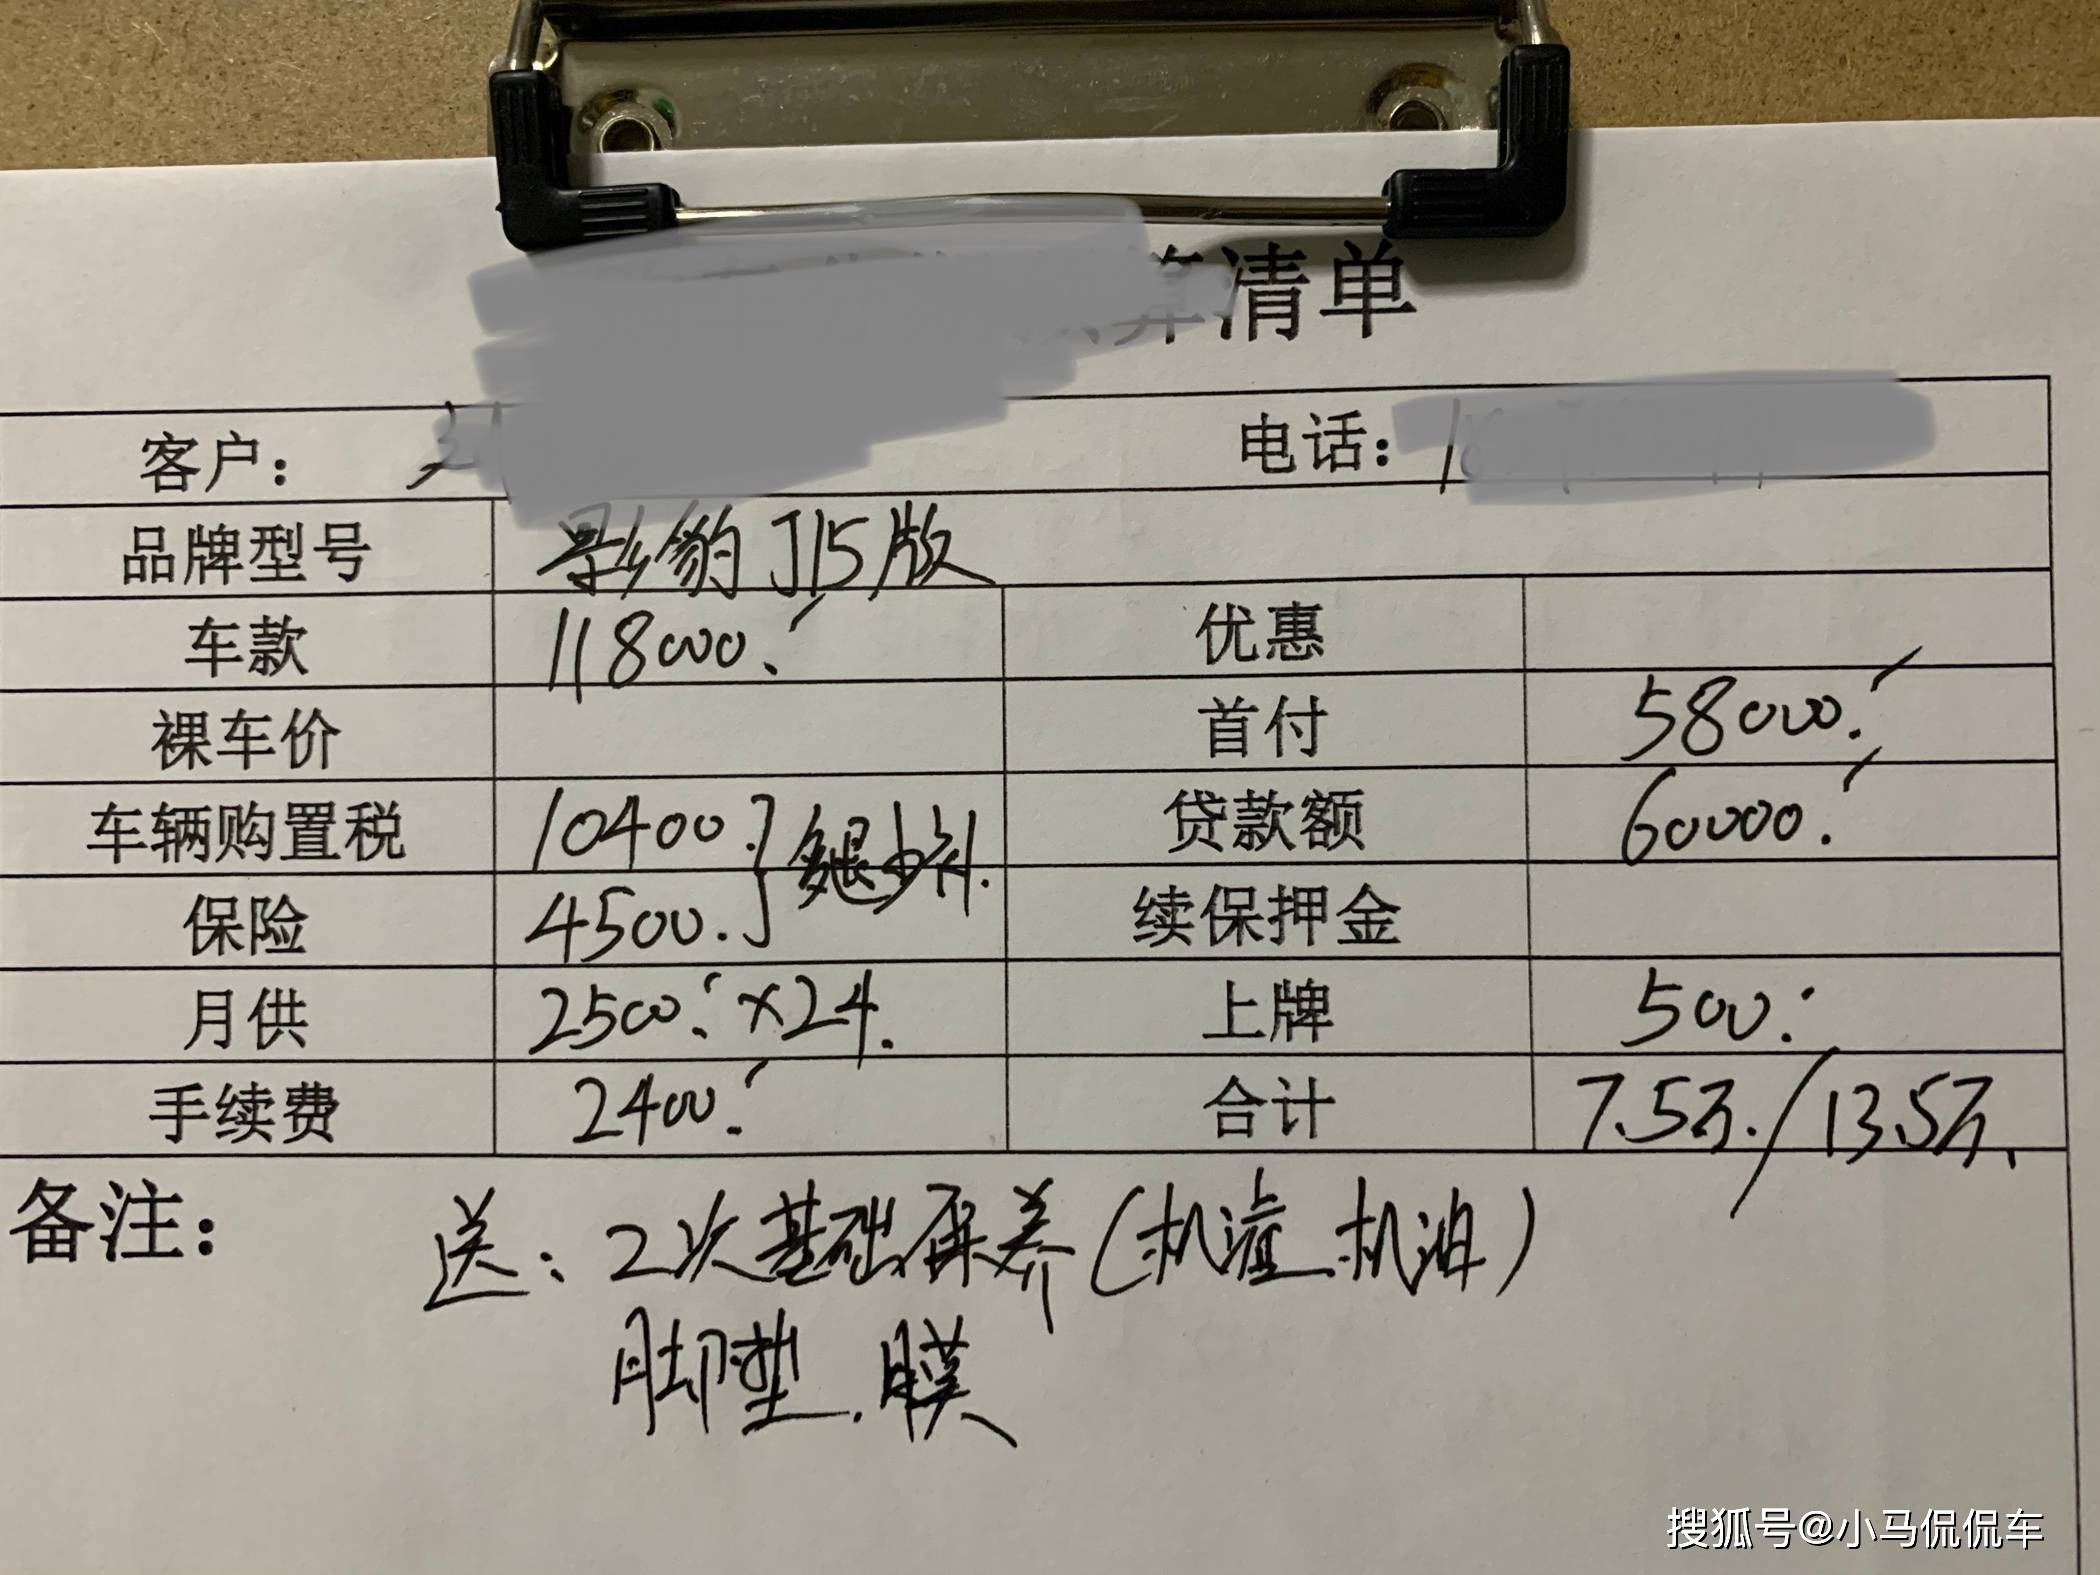 算清单
客户： 电话： 18
品牌型号 影豹J15版
车款 118000. 优惠
裸车价 首付 58000.
车辆购置税 10400. 多退少补. 贷款额 60000.
保险 4500. 续保押金
月供 2500. ×24. 上牌 500.
手续费 2400. 合计 7.5万./13.5万.
备注： 送：2次基础保养（机滤.机油）
脚垫.膜
搜狐号@小马侃侃车